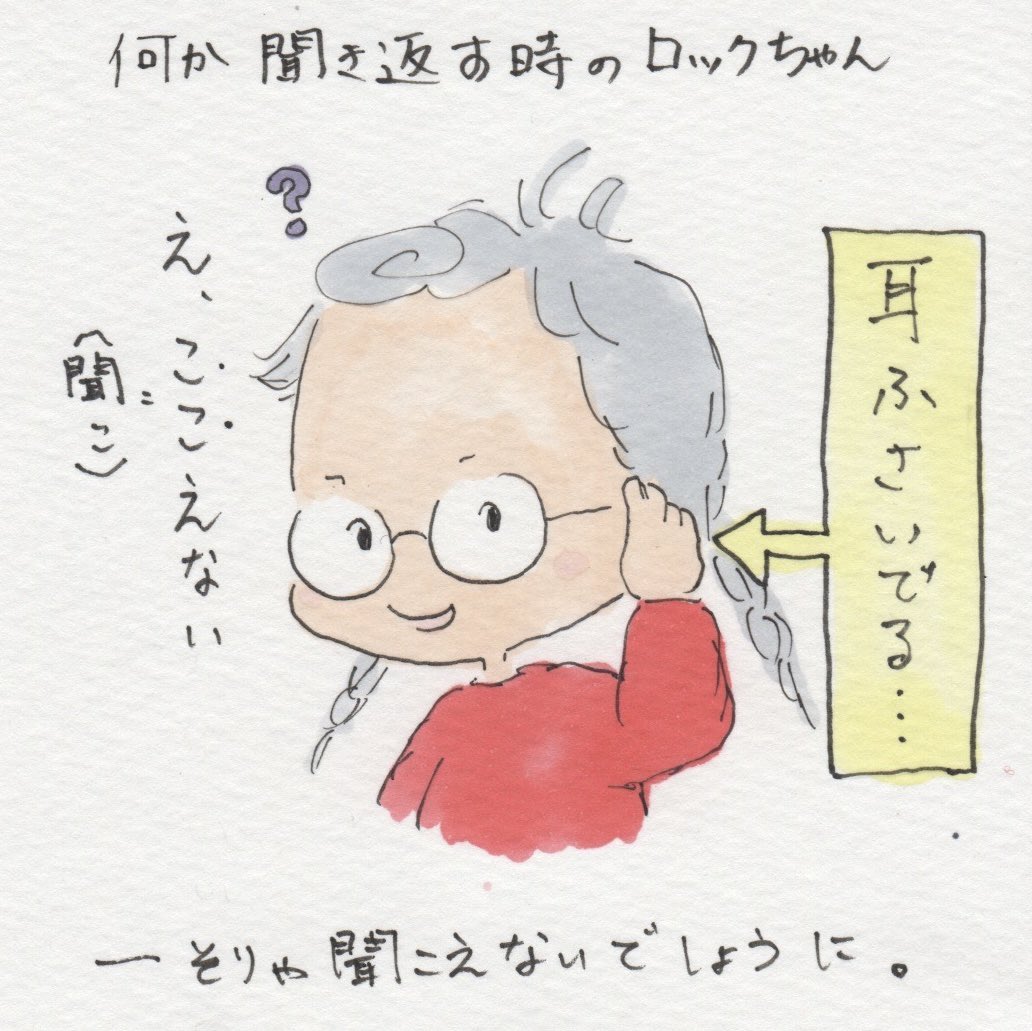 何か聞き返す時のロックちゃん
?
え、ここえない
(聞こ)
耳ふさいでる…
ーそりゃ聞こえないでしょうに。